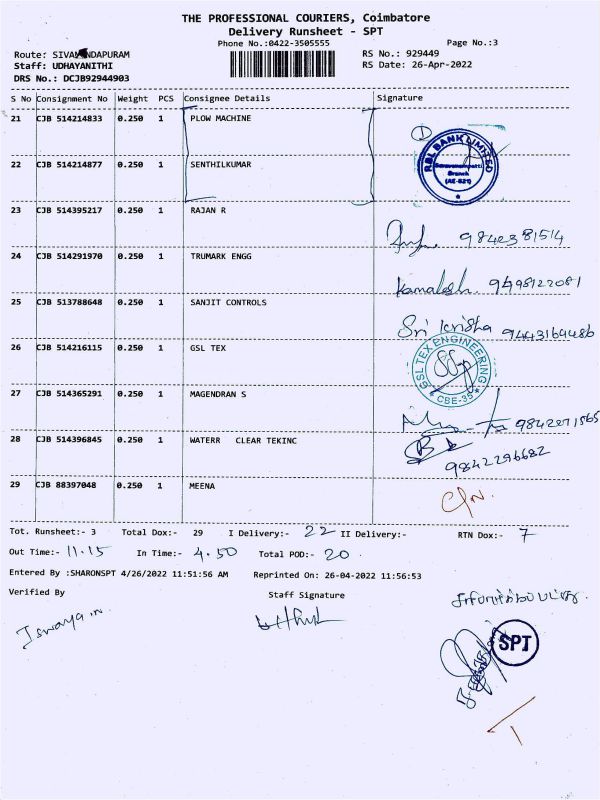 THE PROFESSIONAL COURIERS, Coimbatore
Delivery Runsheet - SPT
Phone No.:0422-3505555 Page No.:3
Route: SIVANANDAPURAM RS No.: 929449
Staff: UDHAYANITHI RS Date: 26-Apr-2022
DRS No.: DCJB92944903
S No Consignment No Weight PCS Consignee Details Signature
21 CJB 514214833 0.250 1 PLOW MACHINE
1
RBL BANK LIMITED
Branch
22 CJB 514214877 0.250 1 SENTHILKUMAR
23 CJB 514395217 0.250 1 RAJAN R
9842381514
24 CJB 514291970 0.250 1 TRUMARK ENGG
Kamalesh. 9498122081
25 CJB 513788648 0.250 1 SANJIT CONTROLS
Sri krisha 9443164486
26 CJB 514216115 0.250 1 GSL TEX
GSL TEX ENGINEERING
CBE-35
27 CJB 514365291 0.250 1 MAGENDRAN S
9842271565
28 CJB 514396845 0.250 1 WATERR CLEAR TEKINC
9842296682
29 CJB 88397048 0.250 1 MEENA
Tot. Runsheet:- 3 Total Dox:- 29 I Delivery:- 22 II Delivery:- RTN Dox:- 7
Out Time:- 11.15 In Time:- 4.50 Total POD:- 20
Entered By :SHARONSPT 4/26/2022 11:51:56 AM Reprinted On: 26-04-2022 11:56:53
Verified By Staff Signature
சரிபார்க்கப்பட்டது.
SPT